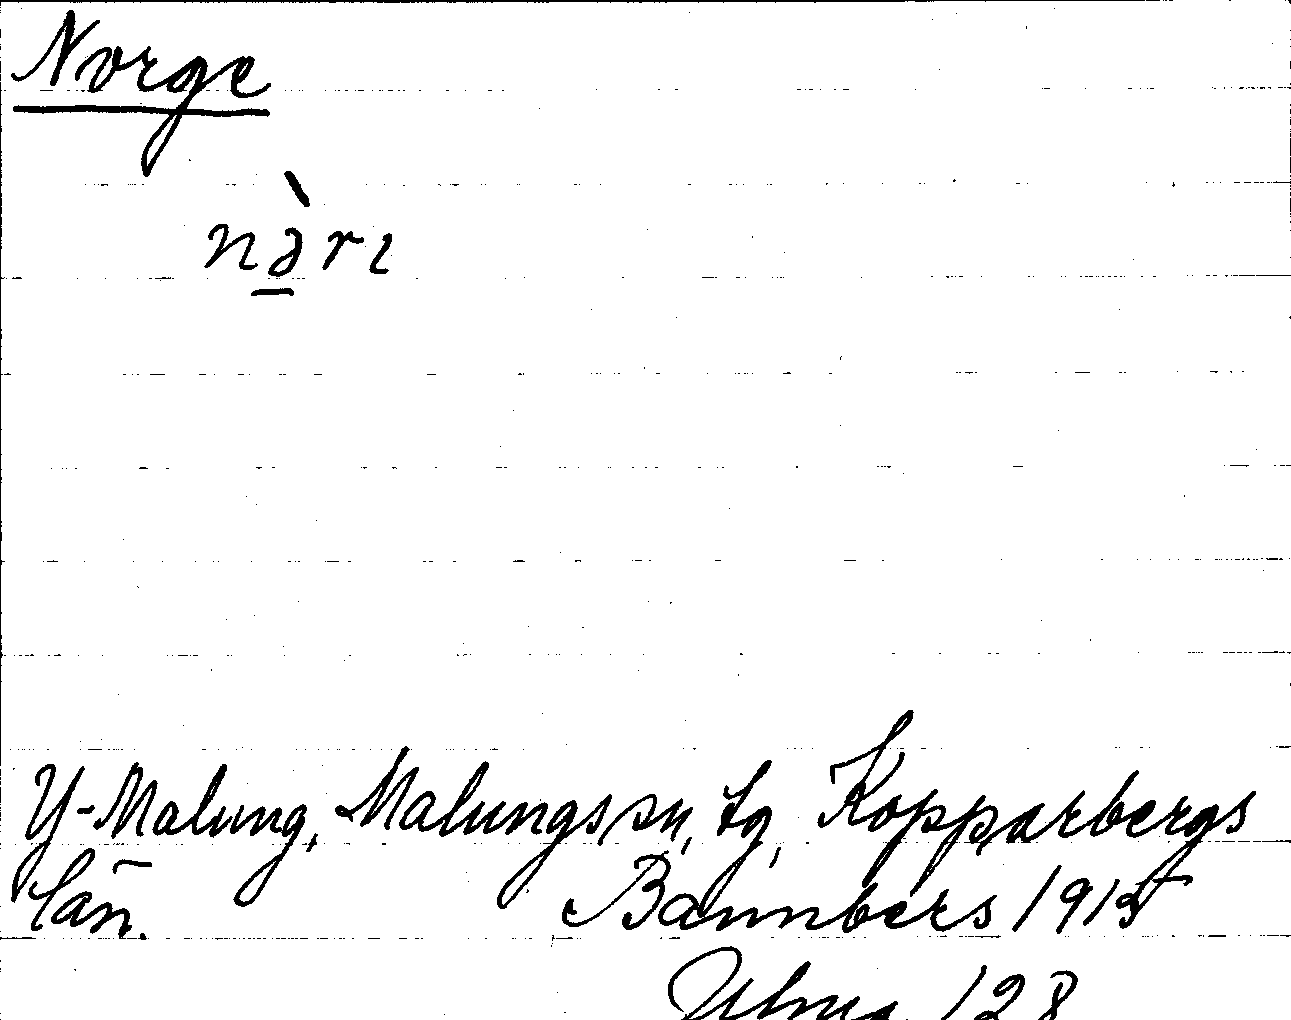 Norge
nə̠̀rɩ
Y-Malung, Malungs sn, tg, Kopparbergs
län. Bannbers 1915
Ulma 128